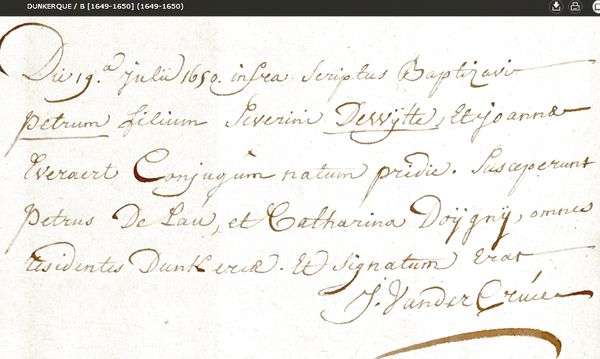 DUNKERQUE / B [1649-1650] (1649-1650)
Die 19.a julii 1650. infra scriptus Baptizavit
petrum filium Severini Dewÿtte, et joannæ
Everaert Conjugum natum pridie. Susceperunt
Petrus De Lau, et Catharina Doÿgnÿ, omnes
residentes Dunkercæ. Et signatum erat
J. Vander Crúce